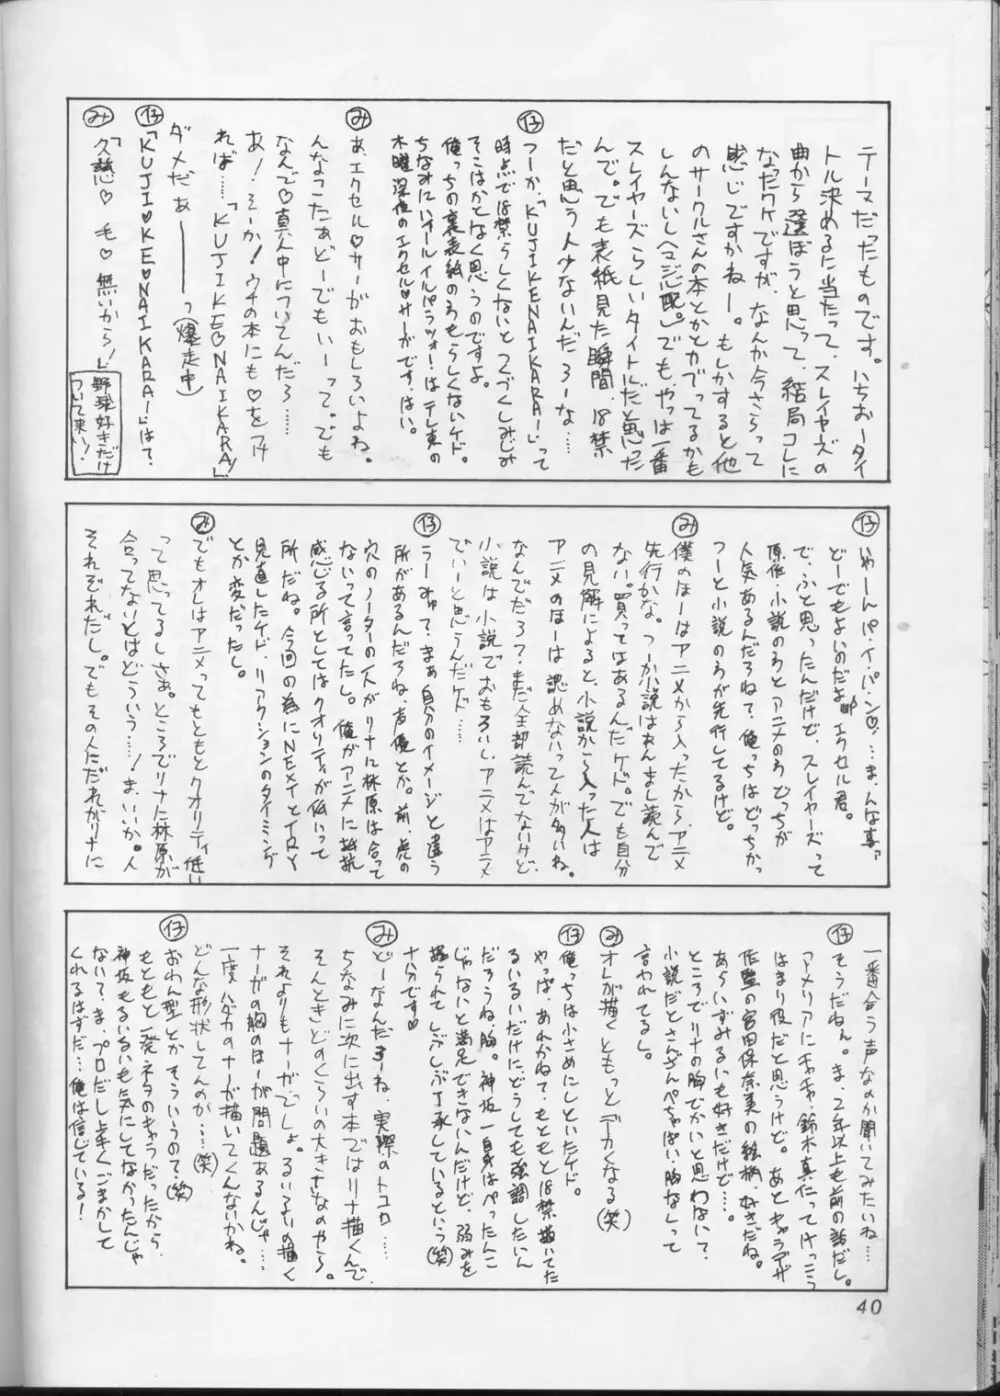 テーマだったものです。いちおータイ
トル決めるに当たって、スレイヤーズの
曲から選ぼうと思って、結局コレに
なったワケですが、なんか今さらって
感じですかねー。もしかすると他
のサークルさんの本とかとカブってるかも
しんないし(マジ心配。)でも、やっぱ一番
スレイヤーズらしいタイトルだと思った
んで。でも表紙見た瞬間、18禁
だと思う人少ないんだろーな…
㋑つーか、「KUJIKENAIKARA!」って
時点で18禁らしくないとつくづくしみじみ
そこはかとなく思うのですよ。
俺っちの裏表紙のほうもらしくないケド。
ちなみにハイール!イルパラッツォ!はテレ東の
木曜深夜のエクセル♡サーガです、はい。
み あ、エクセル♡サーガおもしろいよね。
んなこたぁどーでもいーって。でも
なんで♡真ん中についてんだろ……
あ!そーか!ウチの本にも♡をつけ
れば……「KUJIKE♡NAIKARA!」
ダメだぁ———っ(爆走中)
仔「KUJI♡KE♡NAI♡KARA!」は?
み「久慈♡ 毛♡ 無いから!」
野球好きだけ
ついて来い!
仔 いやーんパ・イ・パ・ン♡…ま、んな事
どーでもよいのだよ エクセル君。
で、ふと思ったんだけど、スレイヤーズって
原作・小説のほうとアニメのほうどっちが
人気あるんだろね?俺っちはどっちかっ
つーと小説のほうが先行してるけど。
み 僕のほーはアニメから入ったから、アニメ
先行かな。つーか小説はあんまし読んで
ない。買ってはあるんだケド。でも自分
の見解によると、小説から入った人は
アニメのほーは、認めないって人が多いね。
なんでだろ?まだ全部読んでないけど、
小説は小説でおもろいし、アニメはアニメ
でいーと思うんだケド……
仔 うーみゅ?まぁ自分のイメージと違う
所があるんだろね、声優とか。前、虎の
穴のノーターの人がリナに林原は合って
ないって言ってたし。俺がアニメに抵抗
感じる所としてはクオリティが低いって
所だね。今回の為にNEXTとTRY
見直したケド、リアクションのタイミング
とか変だったし。
み でもオレはアニメってもともとクオリティ低い
って思ってるしさぁ。ところでリナに林原が
合ってないとはどういう……!ま、いいか。人
それぞれだし。でもその人だれがリナに
一番合う声なのか聞いてみたいね…
仔 そうだねぇ。ま、2年以上も前の話だし。
アメリアにチャチャ鈴木真仁ってけっこう
はまり役だと思うけど。あとキャラデザ
作監の宮田保奈美の絵柄、好きだね。
あらいずみるいも好きだけど…。
ところでリナの胸でかいと思わない?
小説だとさんざんぺちゃぱい胸なしって
言われてるし。
み オレが描くともっとデカくなる(笑)
仔 俺っちは小さめにしといたケド。
やっぱ、あれかね?もともと18禁描いてた
るいるいだけに、どうしても強調したいん
だろうね、胸。神坂一自身はぺったんこ
じゃないと満足できないんだけど、弱みを
握られてしぶしぶ了承しているという(笑)
十八分です♡
み どーなんだろーね、実際のトコロ……
ちなみに次に出す本ではリナ描くんで、
そんときどのくらいの大きさなのやら。
それよりもナーガでしょ。るいるいの描く
ナーガの胸のほーが問題あるんじゃ……
一度ハダカのナーガ描いてくんないかね。
どんな形状してんのか……(笑)
仔 おわん型とかそういうので?(笑)
もともと一発ネタのキャラだったから、
神坂もるいるいも気にしてなかったんじゃ
ない?ま、プロだし上手くごまかして
くれるはずだ…俺は信じている!
40